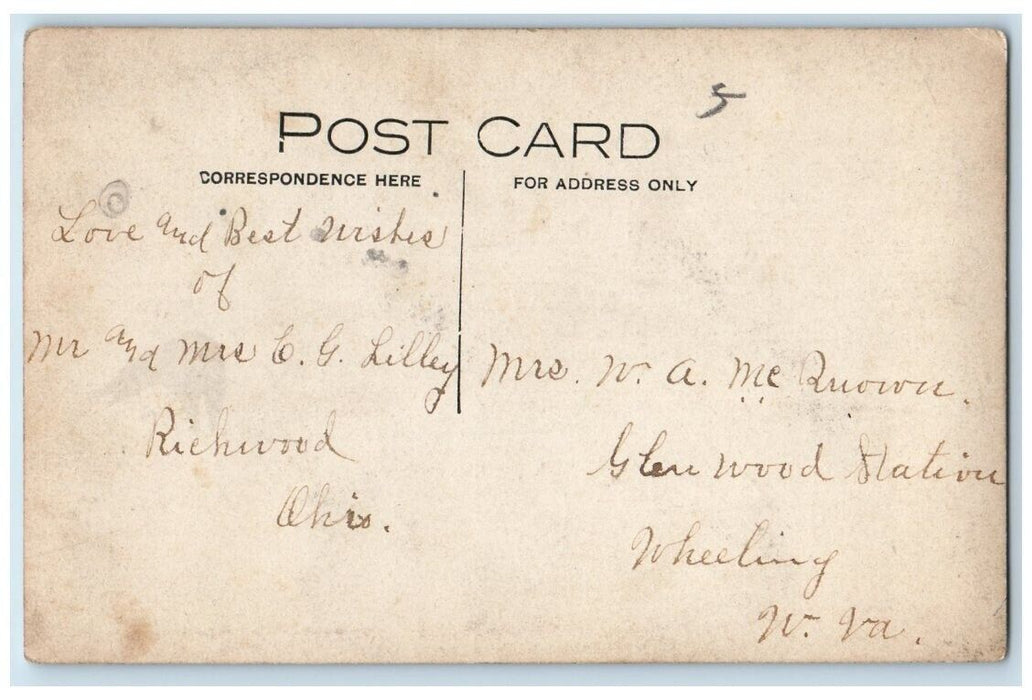 5
POST CARD
CORRESPONDENCE HERE
FOR ADDRESS ONLY
Love and Best Wishes
of
Mr and Mrs C. G. Lilley
Richwood
Ohio.
Mrs. W. A. Mc
Glenwood Station
Wheeling
W. Va.